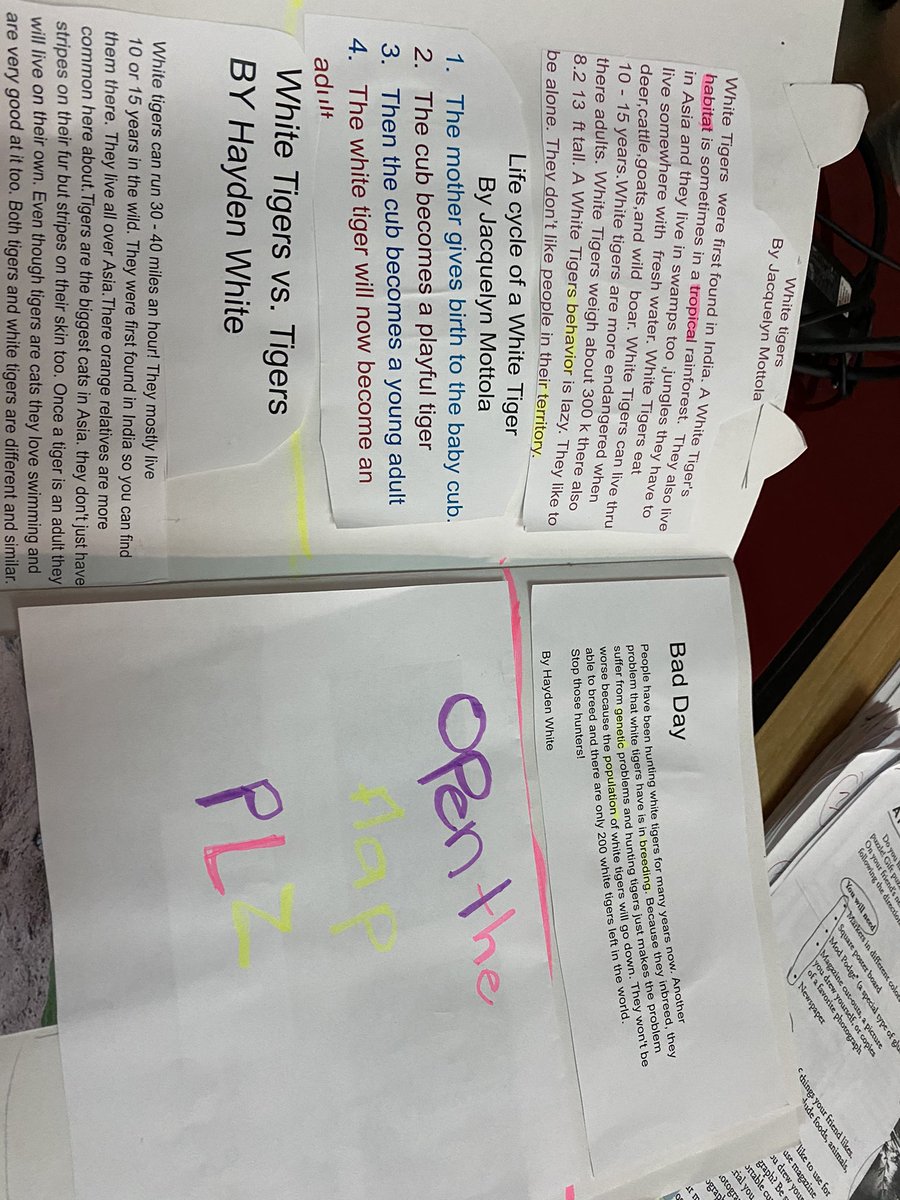 White tigers
By Jacquelyn Mottola
White Tigers were first found in India. A White Tiger's
habitat is sometimes in a tropical rainforest. They also live
in Asia and they live in swamps too jungles they have to
live somewhere with fresh water. White Tigers eat
deer,cattle,goats,and wild boar. White Tigers can live thru
10 - 15 years.White tigers are more endangered when
there adults. White Tigers weigh about 300 k there also
8.2 13 ft tall. A White Tigers behavior is lazy. They like to
be alone. They don't like people in their territory.
Life cycle of a White Tiger
By Jacquelyn Mottola
1. The mother gives birth to the baby cub.
2. The cub becomes a playful tiger
3. Then the cub becomes a young adult
4. The white tiger will now become an
adult
White Tigers vs. Tigers
BY Hayden White
White tigers can run 30 - 40 miles an hour! They mostly live
10 or 15 years in the wild. They were first found in India so you can find
them there. They live all over Asia.There orange relatives are more
common here about.Tigers are the biggest cats in Asia. they don't just have
stripes on their fur but stripes on their skin too. Once a tiger is an adult they
will live on their own. Even though tigers are cats they love swimming and
are very good at it too. Both tigers and white tigers are different and similar.
Bad Day
People have been hunting white tigers for many years now. Another
problem that white tigers have is in breeding. Because they inbreed, they
suffer from genetic problems and hunting tigers just makes the problem
worse because the population of white tigers will go down. They won't be
able to breed and there are only 200 white tigers left in the world.
Stop those hunters!
By Hayden White
OPen the
flap
PLZ
Do you
puzzle! Gift
On your friend's
following the direction
You will need
• Markers in different colors
• Square poster board
• Mod Podge® (a special type of
• Magazine cut-outs, a picture
you drew yourself, or copies
of a favorite photograph
• Newspaper
things your friend likes,
foods, animals,